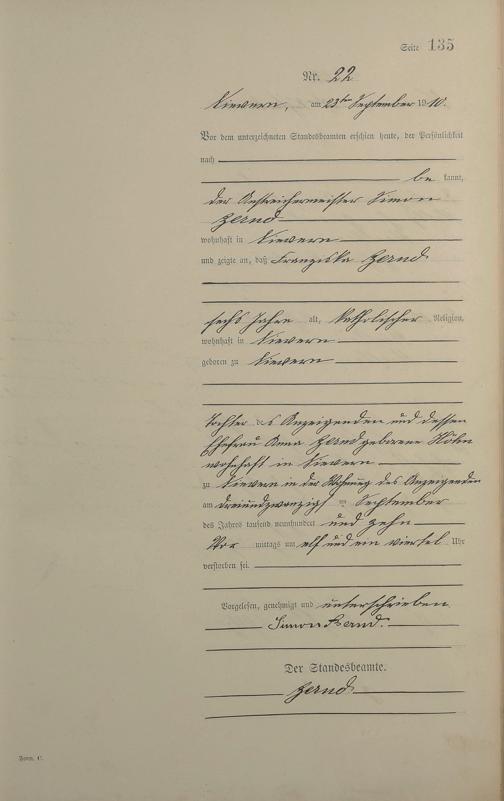 Seite 135
Nr. 22
Kiewern, am 23ten September 1910.
Vor dem unterzeichneten Standesbeamten erschien heute, der Persönlichkeit
nach
be kannt,
der Anstreichermeister Simon
Zernd
wohnhaft in Kiewern
und zeigte an, daß Franziska Zernd
sechs Jahre alt, katholischer Religion,
wohnhaft in Kiewern
geboren zu Kiewern
Tochter des Anzeigenden und dessen
Ehefrau Anna Zernd geborene Höhn
wohnhaft in Kiewern
zu Kiewern in der Wohnung des Anzeigenden
am dreiundzwanzigsten September
des Jahres tausend neunhundert und zehn
Vor mittags um elf und ein viertel Uhr
verstorben sei.
Vorgelesen, genehmigt und unterschrieben
Simon Zernd.
Der Standesbeamte.
Zernd
Form. C.